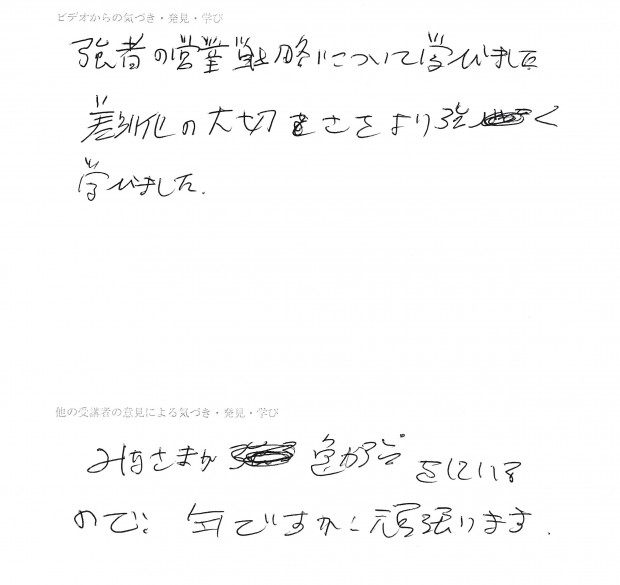 ビデオからの気づき・発見・学び
強者の営業戦略について学びました
差別化の大切をさをより強く
学びました.
他の受講者の意見による気づき・発見・学び
みなさまが をしている
ので、 ですが、頑張ります.